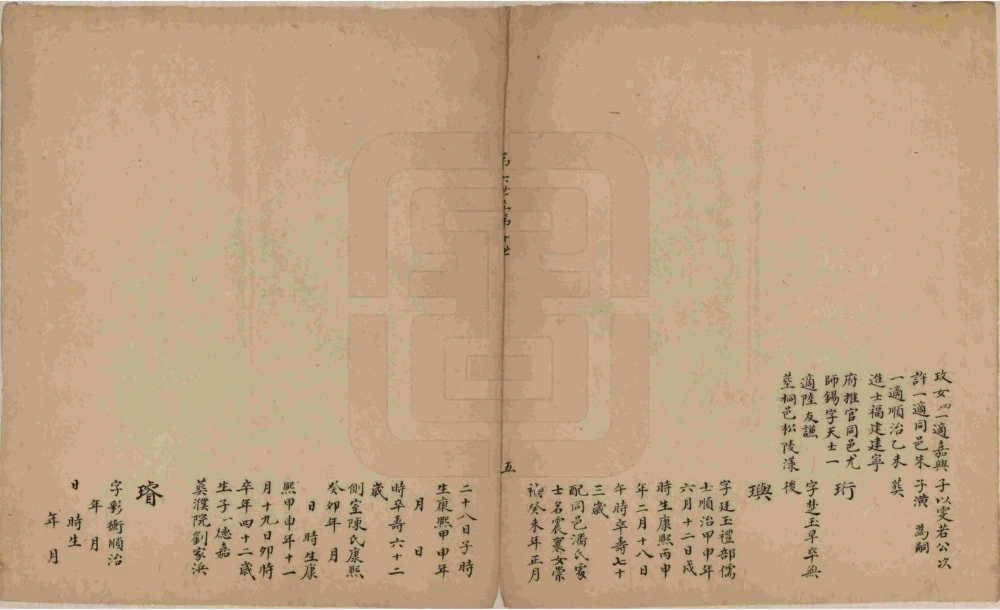 玫女四一適嘉興
許一適同邑朱
一適順治乙未
進士福建建寧
府推官同邑尤
師錫字天士一
適陸友謙
塟桐邑松陵漾
子以雯若公次
子潢 為嗣
塟
珩
字楚玉早卒無
後
璵
字廷玉禮部儒
士順治甲申年
六月十二日戌
時生康熙丙申
年二月十八日
午時卒壽七十
三歲
配同邑潘氏家
士名震襄女崇
禎癸未年正月
第六世至第十世
五
二十八日子時
生康熙甲申年
月 日
時卒壽六十二
歲
側室陳氏康熙
癸卯年 月
日 時生康
熙甲申年十一
月十九日卯時
卒年四十二歲
生子一德嘉
塟濮院劉家浜
璿
字彩衡順治
年 月
日 時生
年 月